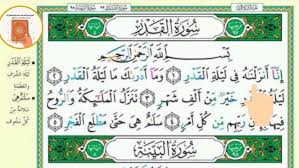 سُورَةُ الْقَدْرِ
بِسْمِ اللَّهِ الرَّحْمَٰنِ الرَّحِيمِ
إِنَّا أَنزَلْنَٰهُ فِي لَيْلَةِ الْقَدْرِ ١ وَمَا أَدْرَىٰكَ مَا لَيْلَةُ الْقَدْرِ ٢
لَيْلَةُ الْقَدْرِ خَيْرٌ مِّنْ أَلْفِ شَهْرٍ ٣ تَنَزَّلُ الْمَلَٰٓئِكَةُ وَالرُّوحُ
فِيهَا بِإِذْنِ رَبِّهِم مِّن كُلِّ أَمْرٍ ٤ سَلَٰمٌ هِيَ حَتَّىٰ مَطْلَعِ الْفَجْرِ ٥
سُورَةُ الْبَيِّنَةِ
لَيْلَةِ الْقَدْرِ
لَيْلَةِ الشَّرَفِ
وَالْعَظَمَةِ